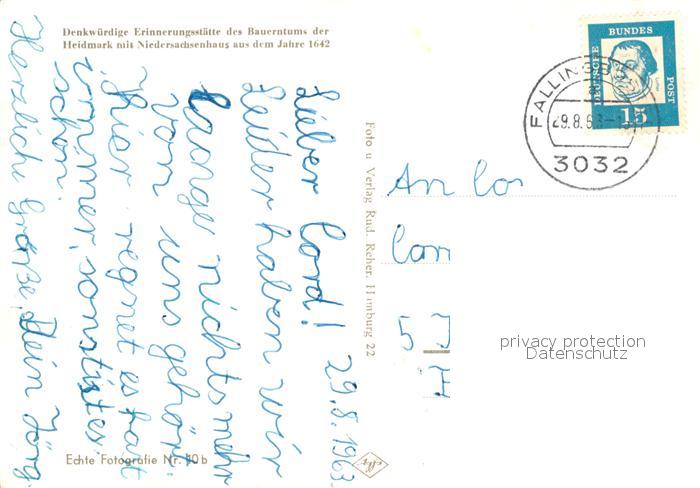 Denkwürdige Erinnerungsstätte des Bauerntums der
Heidmark mit Niedersachsenhaus aus dem Jahre 1642
29.8.1963.
Lieber Cord!
Leider haben wir
lange nichts mehr
von uns gehört.
Hier regnet es fast
immer, sonst ist es
schön.
Herzliche Grüße Dein Jörg
Echte Fotografie Nr. 10 b
Foto u Verlag Rud. Reher, Hamburg 22
DEUTSCHE BUNDES POST
15
FALLING
29.8.63
3032
An Co
5
privacy protection
Datenschutz